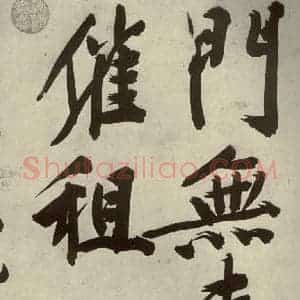 門無
催租
Shufaziliao.COM